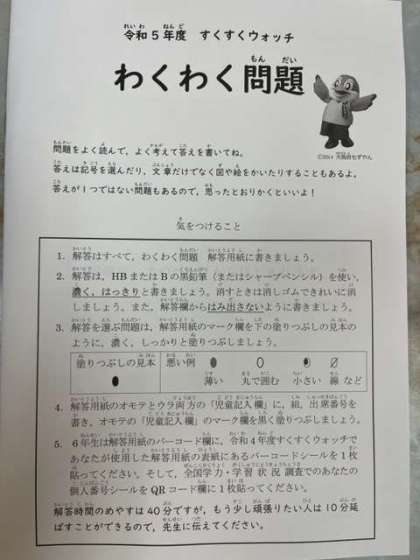 令和5年度 すくすくウォッチ
わくわく問題
©2014 大阪府もずやん
問題をよく読んで、よく考えて答えを書いてね。
答えは記号を選んだり、文章だけでなく図や絵をかいたりすることもあるよ。
答えが1つではない問題もあるので、思ったとおりかくといいよ！
気をつけること
1. 解答はすべて，わくわく問題 解答用紙に書きましょう。
2. 解答は，HBまたはBの黒鉛筆（またはシャープペンシル）を使い，
濃く，はっきりと書きましょう。消すときは消しゴムできれいに消
しましょう。また，解答欄からはみ出さないように書きましょう。
3. 解答を選ぶ問題は，解答用紙のマーク欄を下の塗りつぶしの見本
のように，濃く，しっかりと塗りつぶしましょう。
塗りつぶしの見本 悪い例
薄い 丸で囲む 小さい 線 など
4. 解答用紙のオモテとウラ両方の「児童記入欄」に，組，出席番号を
書き，オモテの「児童記入欄」のマーク欄を黒く塗りつぶしましょう。
5. 6年生は解答用紙のバーコード欄に，令和4年度すくすくウォッチで
あなたが使用した解答用紙の表紙にあるバーコードシールを1枚
貼ってください。そして，全国学力・学習状況調査でのあなたの
個人番号シールをQRコード欄に1枚貼ってください。
解答時間のめやすは40分ですが、もう少し頑張りたい人は10分延
ばすことができるので、先生に伝えてください。